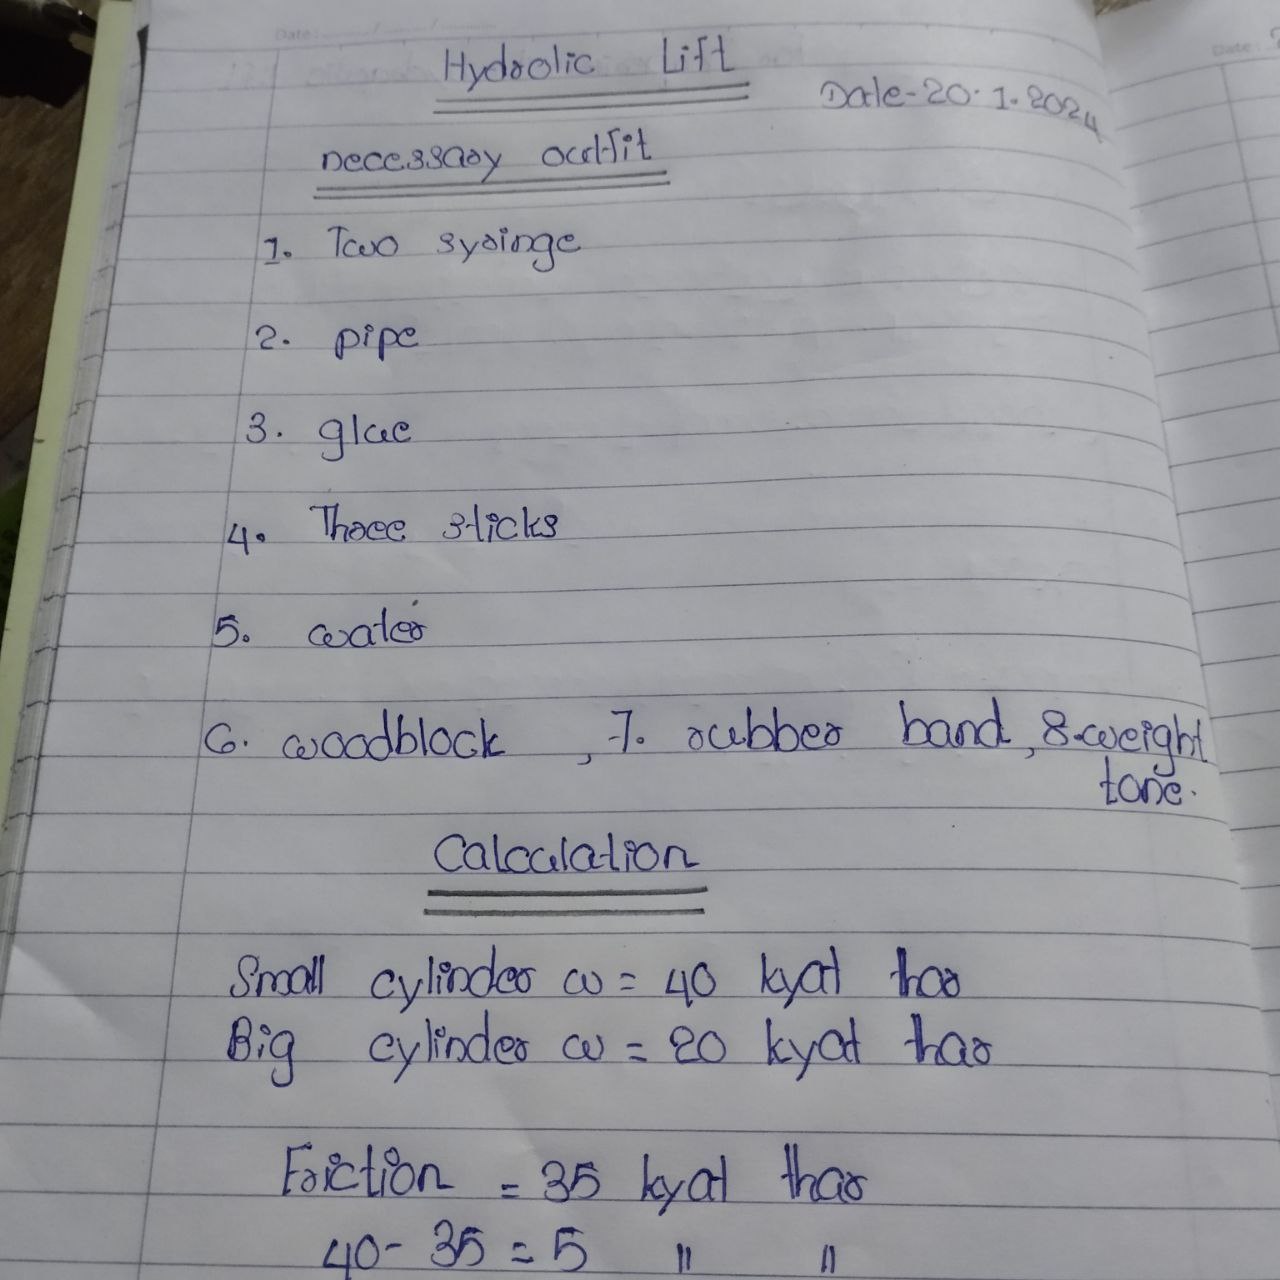 Hydraulic Lift
Date-20.1.2024
necessary outfit
1. Two syringe
2. pipe
3. glue
4. Three sticks
5. water
6. woodblock , 7. rubber band, 8.weight
tone.
Calculation
Small cylinder w = 40 kyat thar
Big cylinder w = 20 kyat thar
Friction = 35 kyat thar
40- 35 = 5 " "